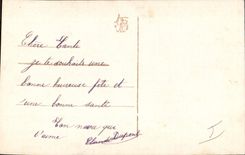 Chère Tante
je te souhaite une
bonne heureuse fête et
une bonne santé
Ton neveu qui
t'aime Claude Dupont
I